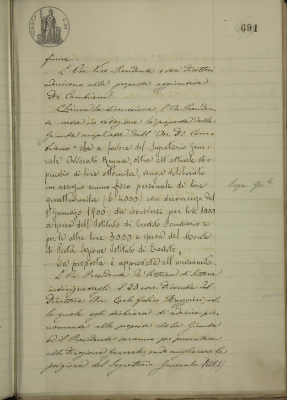 691
favore.
L'On. Vice Presidente e altri Direttori
aderiscono alla proposta aggiuntiva
Di Cambiano.
Chiusa la discussione, l'On. Presiden
te mette in votazione la proposta della
Giunta ampliata dall'On. Di Cam
biano: che a favore del Segretario Gene
rale Avvocato Regnua, oltre all'attuale sti
pendio di lire ottomila, venga deliberato
un assegno annuo fisso personale di lire
quattromila (L. 4000) con decorrenza dal
1° Gennaio 1900 da servirsi per lire 1000
a spesa dell'Istituto di Credito Fondiario e
per le altre lire 3000 a spesa del Monte
di Pietà sezione Istituto di Credito.
La proposta è approvata all'unanimità.
L'On. Presidente dà lettura di lettera
indirizzatagli il 23 corr. Dicembre dal
Direttore Avv. Carlo Felice Roggeri, nel
la quale egli dichiara di aderire pie
namente alle proposte che la Giunta
ed il Presidente saranno per presentare
alla Direzione Generale, onde migliorare la
posizione del Segretario Generale